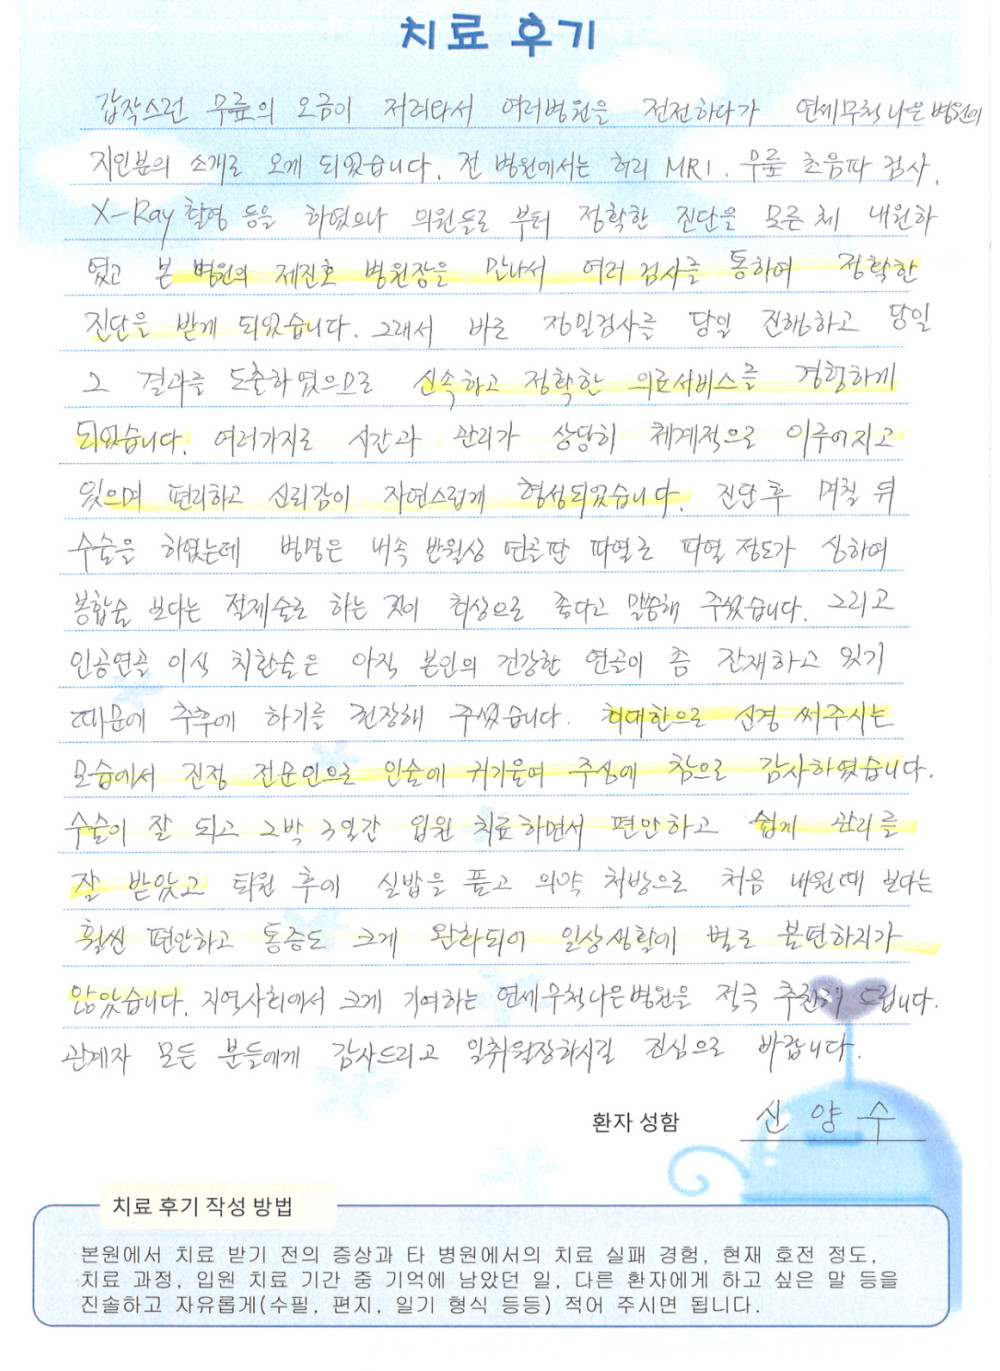 치료 후기
갑작스런 무릎의 오금이 저려와서 여러병원을 전전하다가 연세무척나은병원에
지인분의 소개로 오게 되었습니다. 전 병원에서는 허리 MRI. 무릎 초음파 검사.
X-Ray 촬영 등을 하였으나 의원들로 부터 정확한 진단을 모른체 내원하
였고 본 병원의 제진호 병원장을 만나서 여러 검사를 통하여 정확한
진단을 받게 되었습니다. 그래서 바로 정밀검사를 당일 진행하고 당일
그 결과를 도출하였으므로 신속하고 정확한 의료서비스를 경험하게
되었습니다. 여러가지로 시간과 관리가 상당히 체계적으로 이루어지고
있으며 편리하고 신뢰감이 자연스럽게 형성되었습니다. 진단후 며칠 뒤
수술을 하였는데 병명은 내측 반월상 연골판 파열로 파열 정도가 심하여
봉합술 보다는 절제술로 하는 것이 최상으로 좋다고 말씀해 주셨습니다. 그리고
인공연골 이식 치환술은 아직 본인의 건강한 연골이 좀 잔재하고 있기
때문에 추후에 하기를 권장해 주셨습니다. 최대한으로 신경 써주시는
모습에서 진정 전문인으로 인술에 귀기울여 주심에 참으로 감사하였습니다.
수술이 잘 되고 2박 3일간 입원 치료하면서 편안하고 쉽게 관리를
잘 받았고 퇴원 후에 실밥을 풀고 의약 처방으로 처음 내원때 보다는
훨씬 편안하고 통증도 크게 완화되어 일상생활에 별로 불편하지가
않았습니다. 지역사회에서 크게 기여하는 연세무척나은병원을 적극 추천해 드립니다.
관계자 모든 분들에게 감사드리고 일취월장하시길 진심으로 바랍니다.
환자 성함 신양수
치료 후기 작성 방법
본원에서 치료 받기 전의 증상과 타 병원에서의 치료 실패 경험, 현재 호전 정도,
치료 과정, 입원 치료 기간 중 기억에 남았던 일, 다른 환자에게 하고 싶은 말 등을
진솔하고 자유롭게(수필, 편지, 일기 형식 등등) 적어 주시면 됩니다.